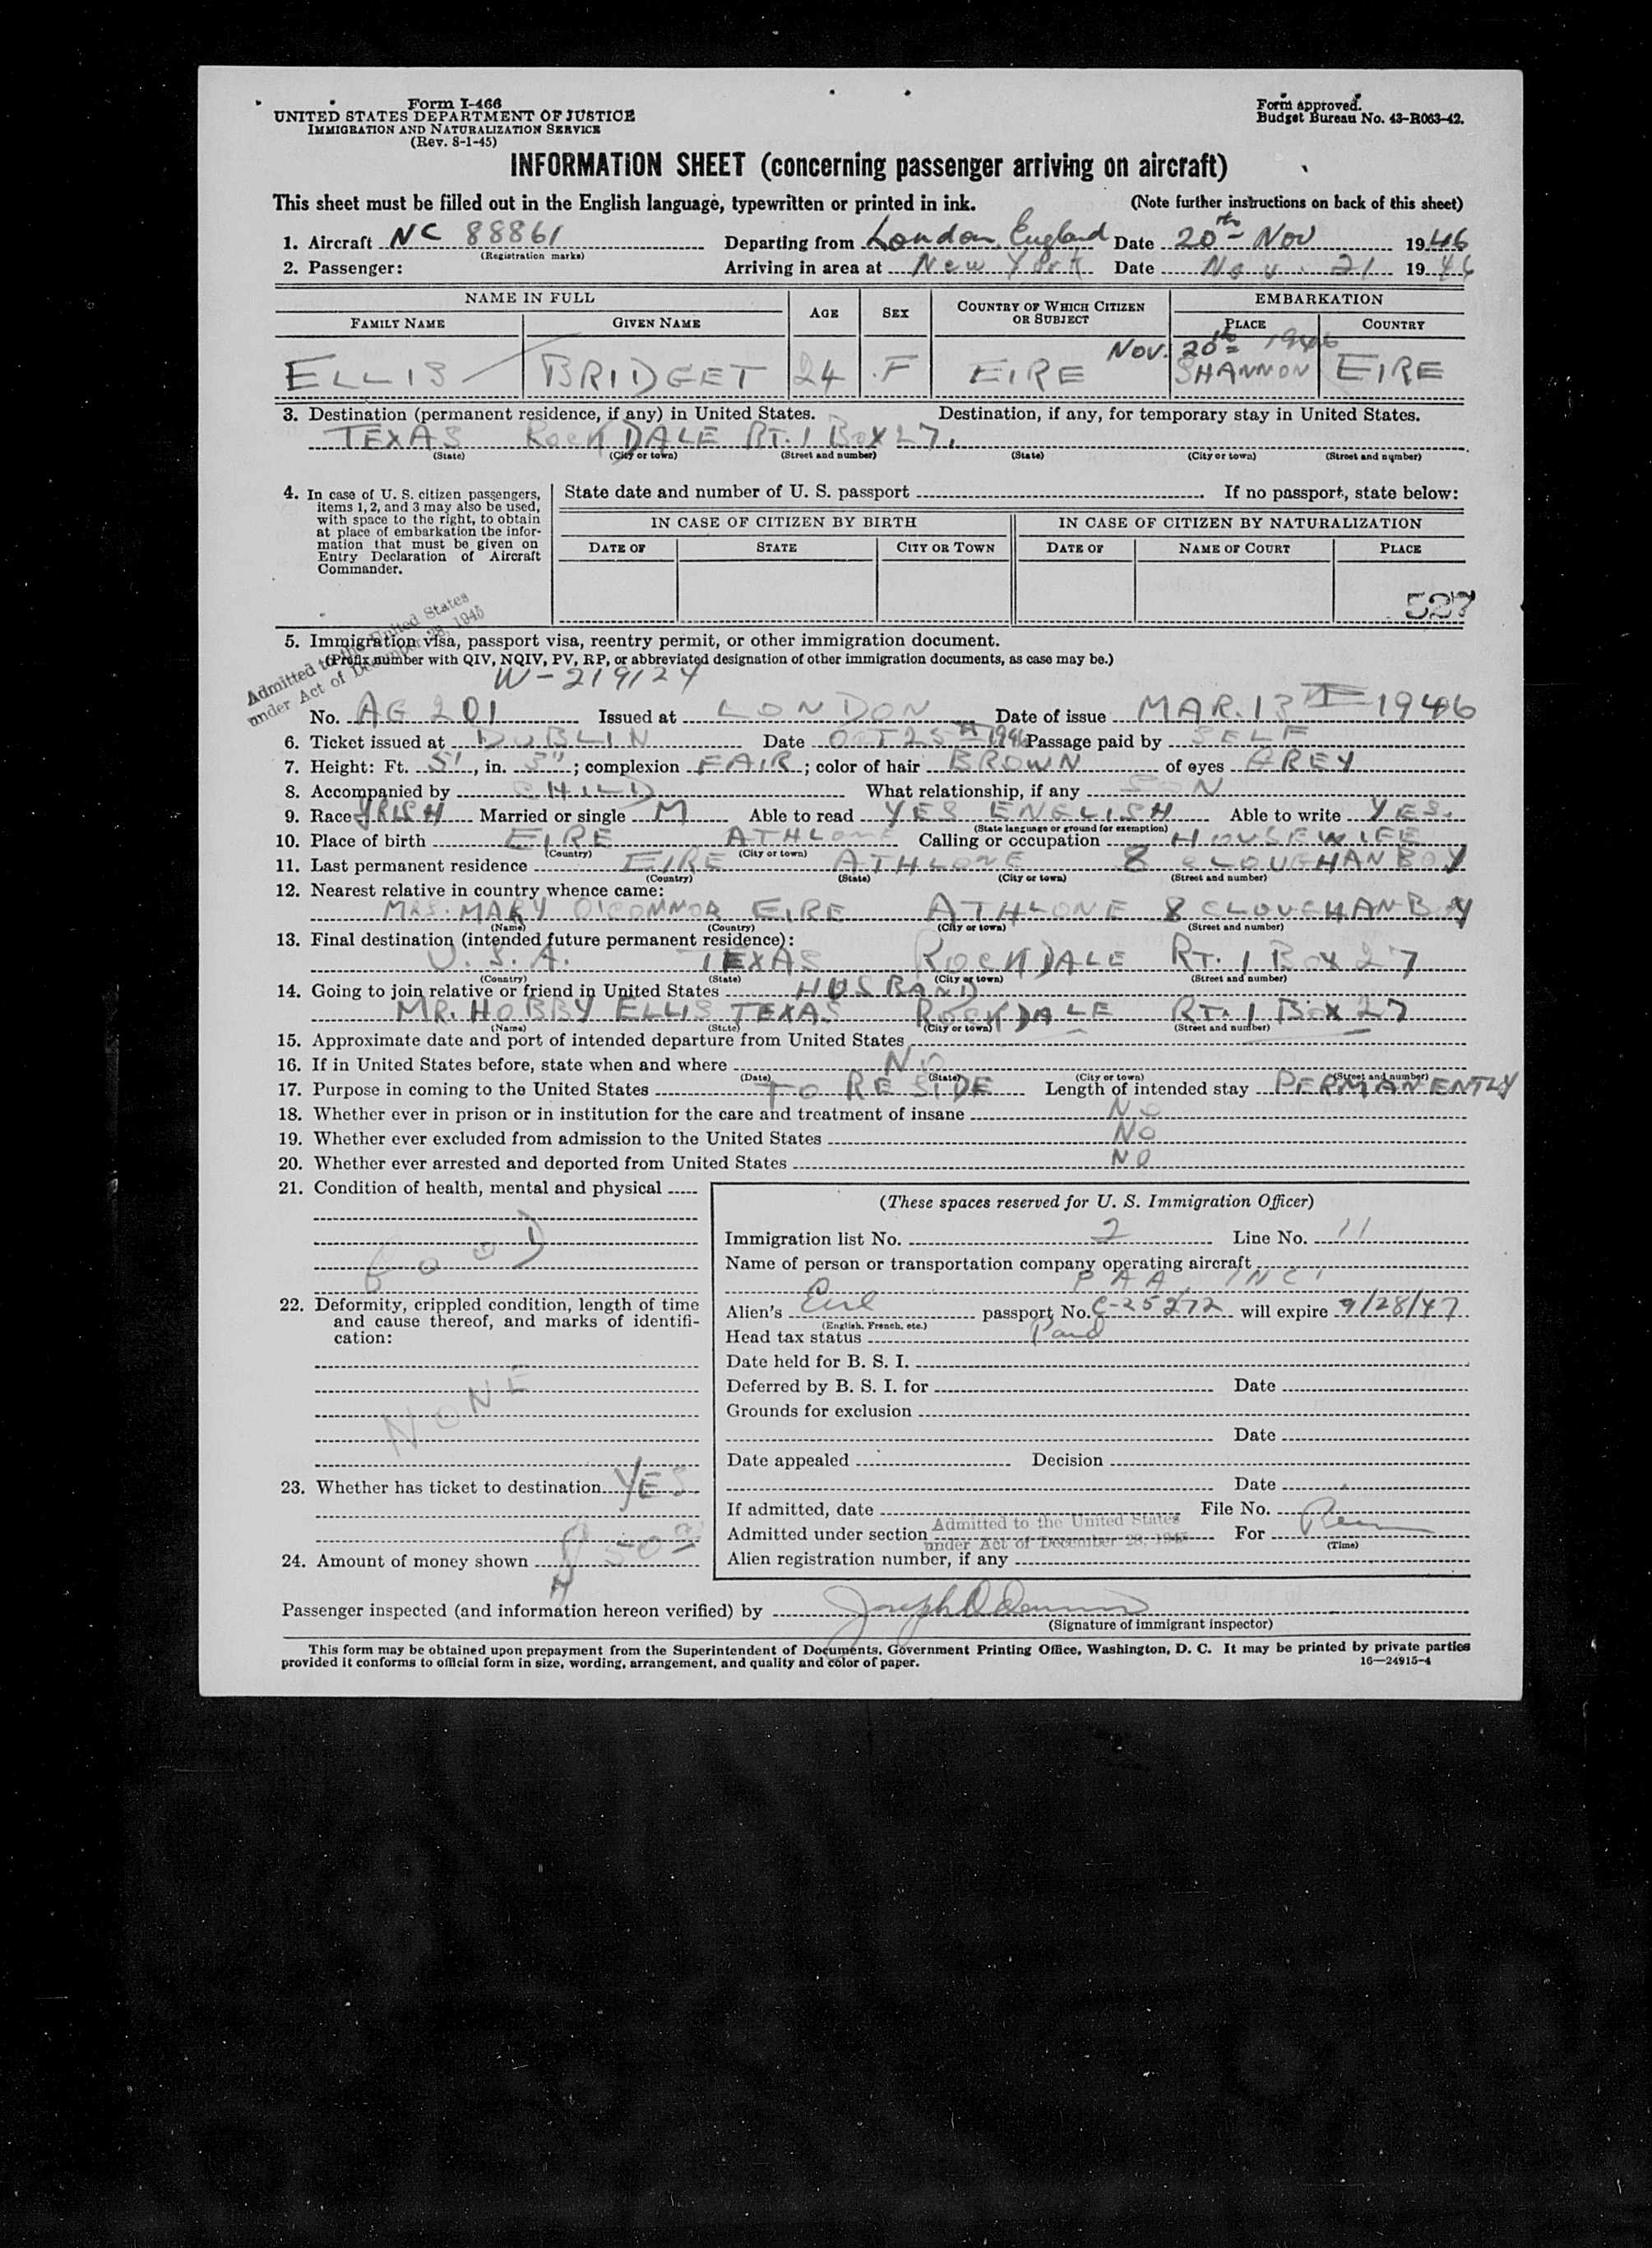 Form I-466
UNITED STATES DEPARTMENT OF JUSTICE
IMMIGRATION AND NATURALIZATION SERVICE
(Rev. 8-1-45)
Form approved.
Budget Bureau No. 43-R063-42.
INFORMATION SHEET (concerning passenger arriving on aircraft)
This sheet must be filled out in the English language, typewritten or printed in ink. (Note further instructions on back of this sheet)
1. Aircraft NC 88861 Departing from London, England Date 20th Nov 1946
(Registration marks)
2. Passenger: Arriving in area at New York Date Nov. 21 1946
NAME IN FULL
FAMILY NAME GIVEN NAME AGE SEX COUNTRY OF WHICH CITIZEN OR SUBJECT EMBARKATION PLACE COUNTRY
NOV. 20th 1946
ELLIS BRIDGET 24 F EIRE SHANNON EIRE
3. Destination (permanent residence, if any) in United States. Destination, if any, for temporary stay in United States.
TEXAS ROCKDALE RT. 1 BOX 27.
(State) (City or town) (Street and number) (State) (City or town) (Street and number)
4. In case of U. S. citizen passengers, items 1, 2, and 3 may also be used, with space to the right, to obtain at place of embarkation the information that must be given on Entry Declaration of Aircraft Commander.
State date and number of U. S. passport If no passport, state below:
IN CASE OF CITIZEN BY BIRTH IN CASE OF CITIZEN BY NATURALIZATION
DATE OF STATE CITY OR TOWN DATE OF NAME OF COURT PLACE
527
Admitted to the United States
under Act of December 28, 1945
5. Immigration visa, passport visa, reentry permit, or other immigration document.
(Prefix number with QIV, NQIV, PV, RP, or abbreviated designation of other immigration documents, as case may be.)
W-219124
No. AG 201 Issued at LONDON Date of issue MAR. 13TH 1946
6. Ticket issued at DUBLIN Date OCT 25TH 1946 Passage paid by SELF
7. Height: Ft. 5', in. 3"; complexion FAIR; color of hair BROWN of eyes GREY
8. Accompanied by CHILD What relationship, if any SON
9. Race IRISH Married or single M Able to read YES ENGLISH Able to write YES.
(State language or ground for exemption)
10. Place of birth EIRE ATHLONE Calling or occupation HOUSEWIFE
(Country) (City or town)
11. Last permanent residence EIRE ATHLONE 8 CLOUGHANBOY
(Country) (State) (City or town) (Street and number)
12. Nearest relative in country whence came:
MRS. MARY O'CONNOR EIRE ATHLONE 8 CLOUGHANBOY
(Name) (Country) (City or town) (Street and number)
13. Final destination (intended future permanent residence):
U. S. A. TEXAS ROCKDALE RT. 1 BOX 27
(Country) (State) (City or town) (Street and number)
14. Going to join relative or friend in United States HUSBAND
MR. HOBBY ELLIS TEXAS ROCKDALE RT. 1 BOX 27
(Name) (State) (City or town) (Street and number)
15. Approximate date and port of intended departure from United States
16. If in United States before, state when and where NO
(Date) (State) (City or town) (Street and number)
17. Purpose in coming to the United States TO RESIDE Length of intended stay PERMANENTLY
18. Whether ever in prison or in institution for the care and treatment of insane NO
19. Whether ever excluded from admission to the United States NO
20. Whether ever arrested and deported from United States NO
21. Condition of health, mental and physical
GOOD
22. Deformity, crippled condition, length of time and cause thereof, and marks of identification:
NONE
23. Whether has ticket to destination YES
24. Amount of money shown $ 50
(These spaces reserved for U. S. Immigration Officer)
Immigration list No. 2 Line No. 11
Name of person or transportation company operating aircraft
P A A, INC.
Alien's Eire passport No. C-25272 will expire 9/28/47
(English, French, etc.)
Head tax status Paid
Date held for B. S. I.
Deferred by B. S. I. for Date
Grounds for exclusion
Date
Date appealed Decision
Date
If admitted, date File No.
Admitted under section Admitted to the United States under Act of December 28, 1945 For
(Time)
Alien registration number, if any
Passenger inspected (and information hereon verified) by
(Signature of immigrant inspector)
This form may be obtained upon prepayment from the Superintendent of Documents, Government Printing Office, Washington, D. C. It may be printed by private parties
provided it conforms to official form in size, wording, arrangement, and quality and color of paper. 16—24915-4